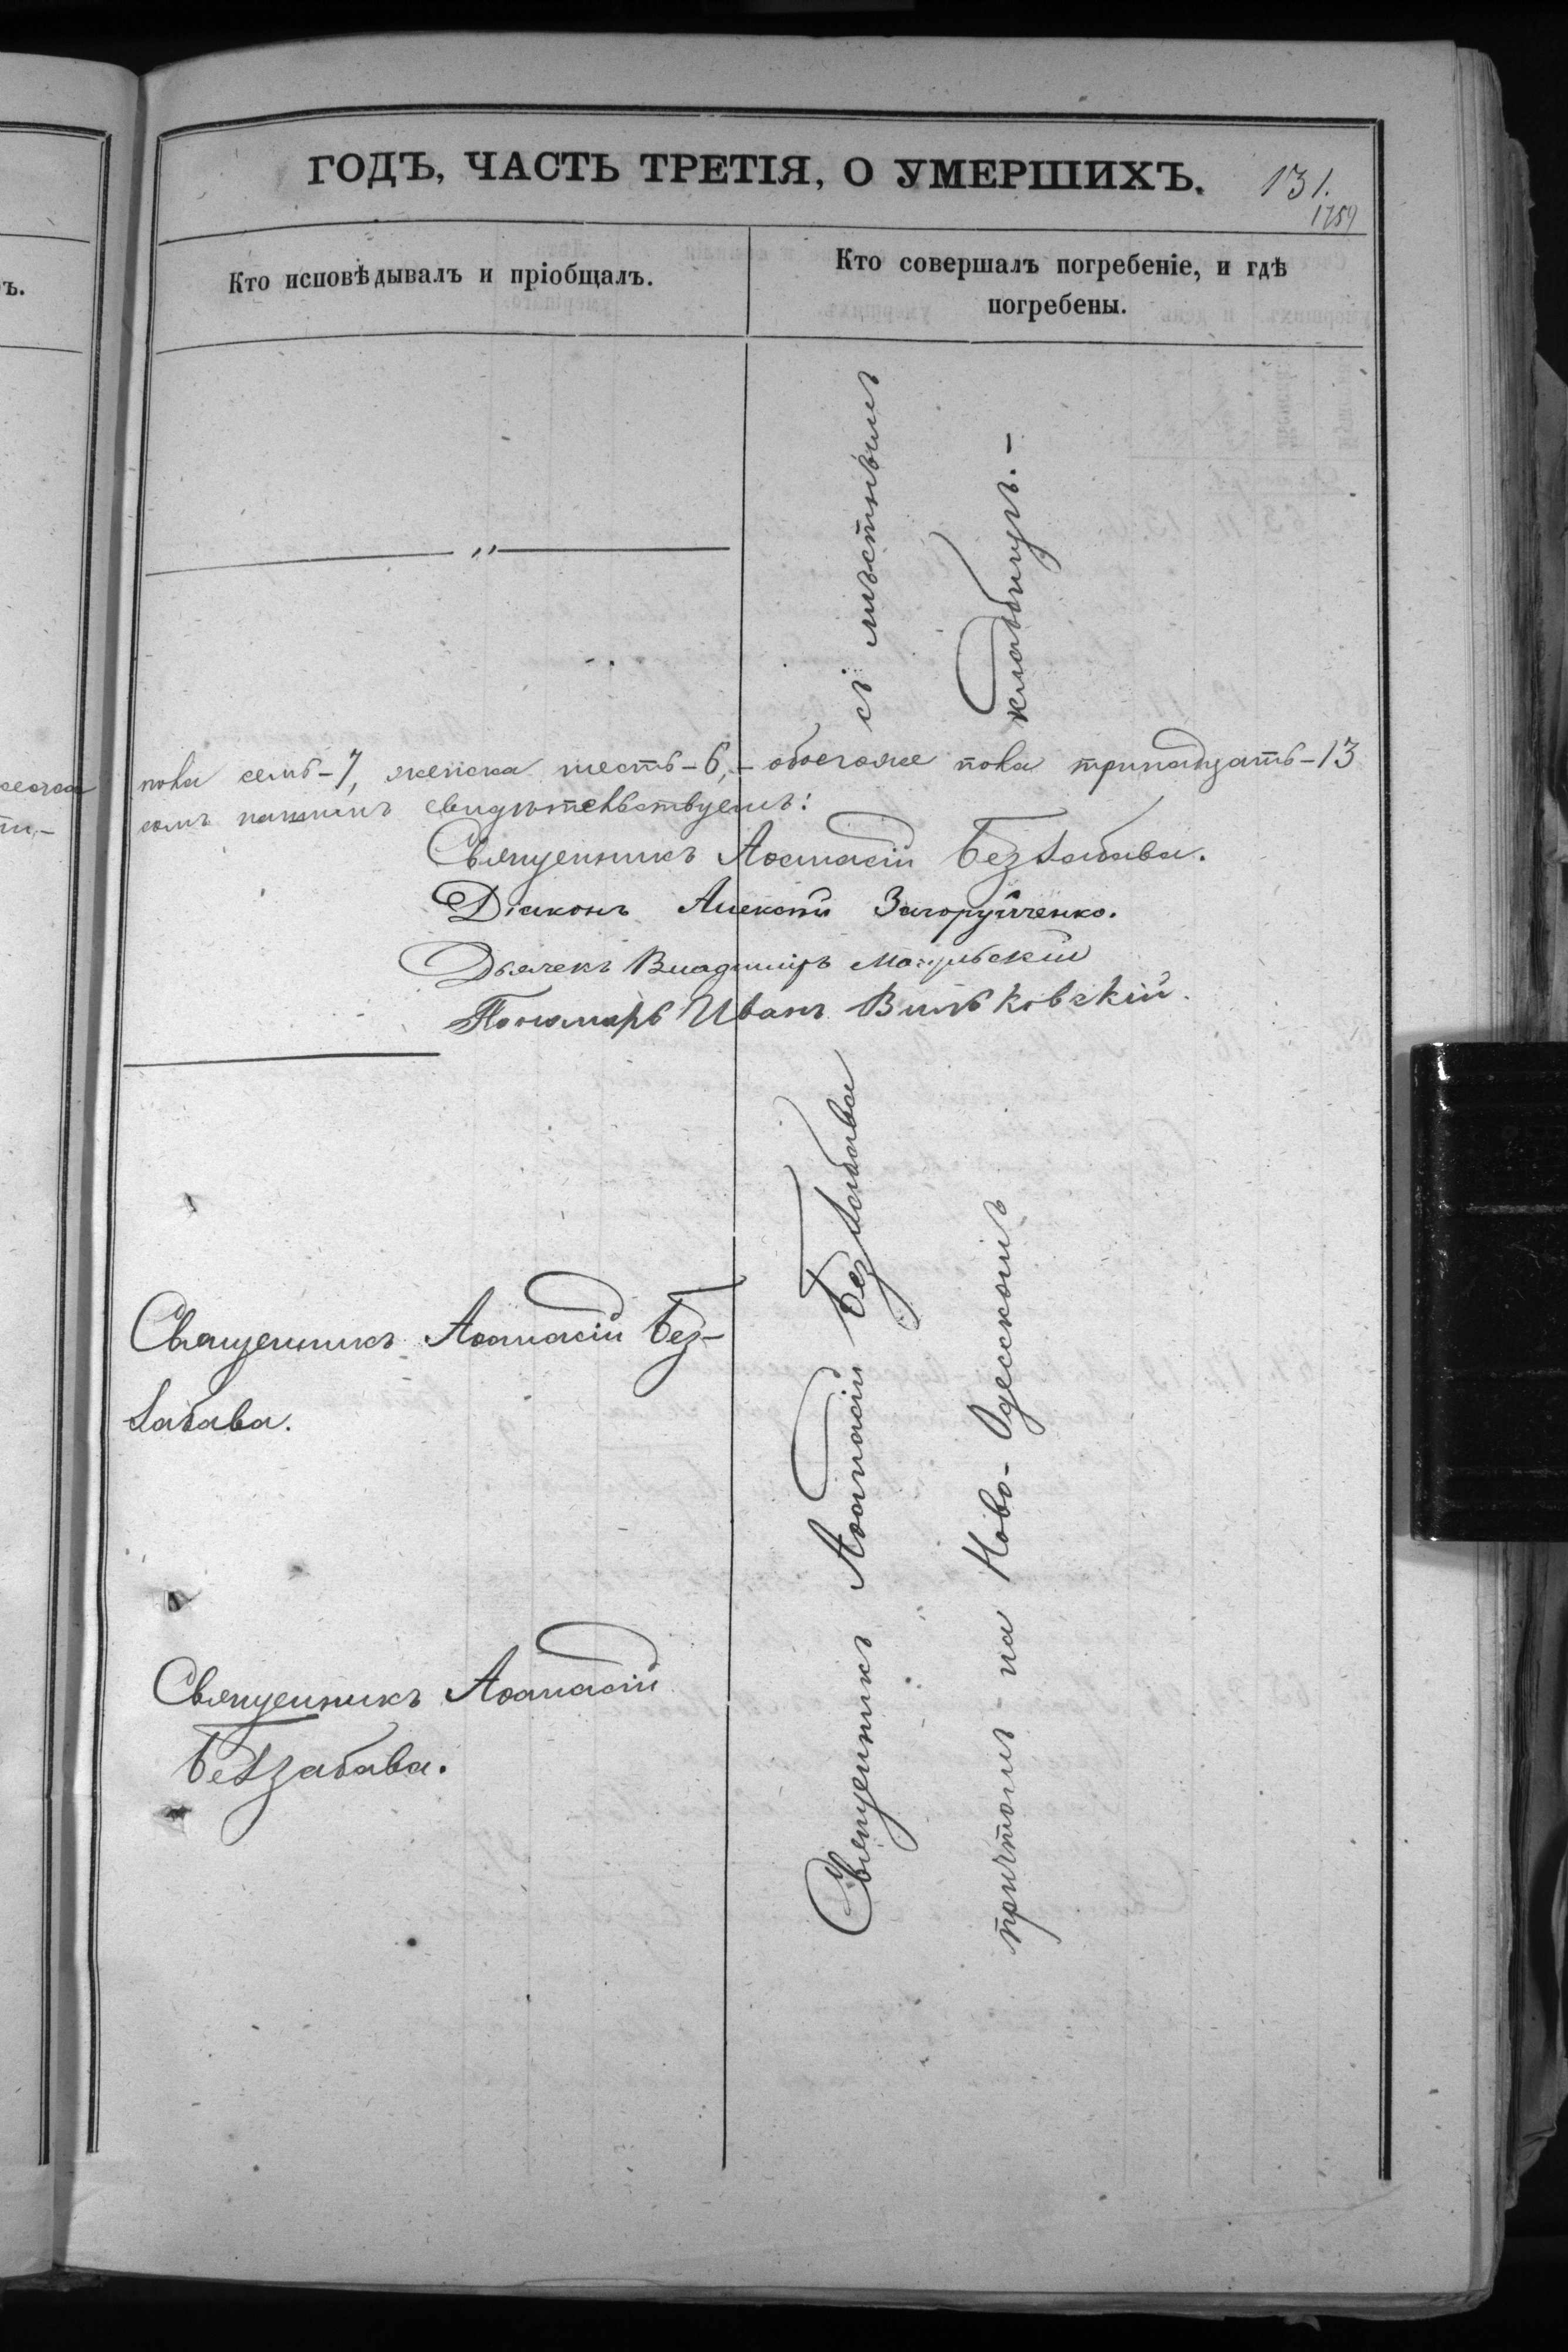 ГОДЪ, ЧАСТЬ ТРЕТІЯ, О УМЕРШИХЪ.
131.
1759
Кто исповѣдывалъ и пріобщалъ.
Кто совершалъ погребеніе, и гдѣ
погребены.
ъ.
съ мѣстнымъ
кладбищѣ.-
пола семь-7, женска шесть-6,- обоегоже пола тринадцать-13
свидѣтельствуемъ:
Священникъ Аѳанасій Беззабава.
Діаконъ Алексѣй Загоруйченко.
Дьячекъ Владиміръ
Пономарь Иванъ Вильковскій.
Священникъ Аѳанасій Без-
забава.
Священникъ Аѳанасій
Беззабава.
Священникъ Аѳанасій Беззабава
причтомъ на Ново-Одесскомъ